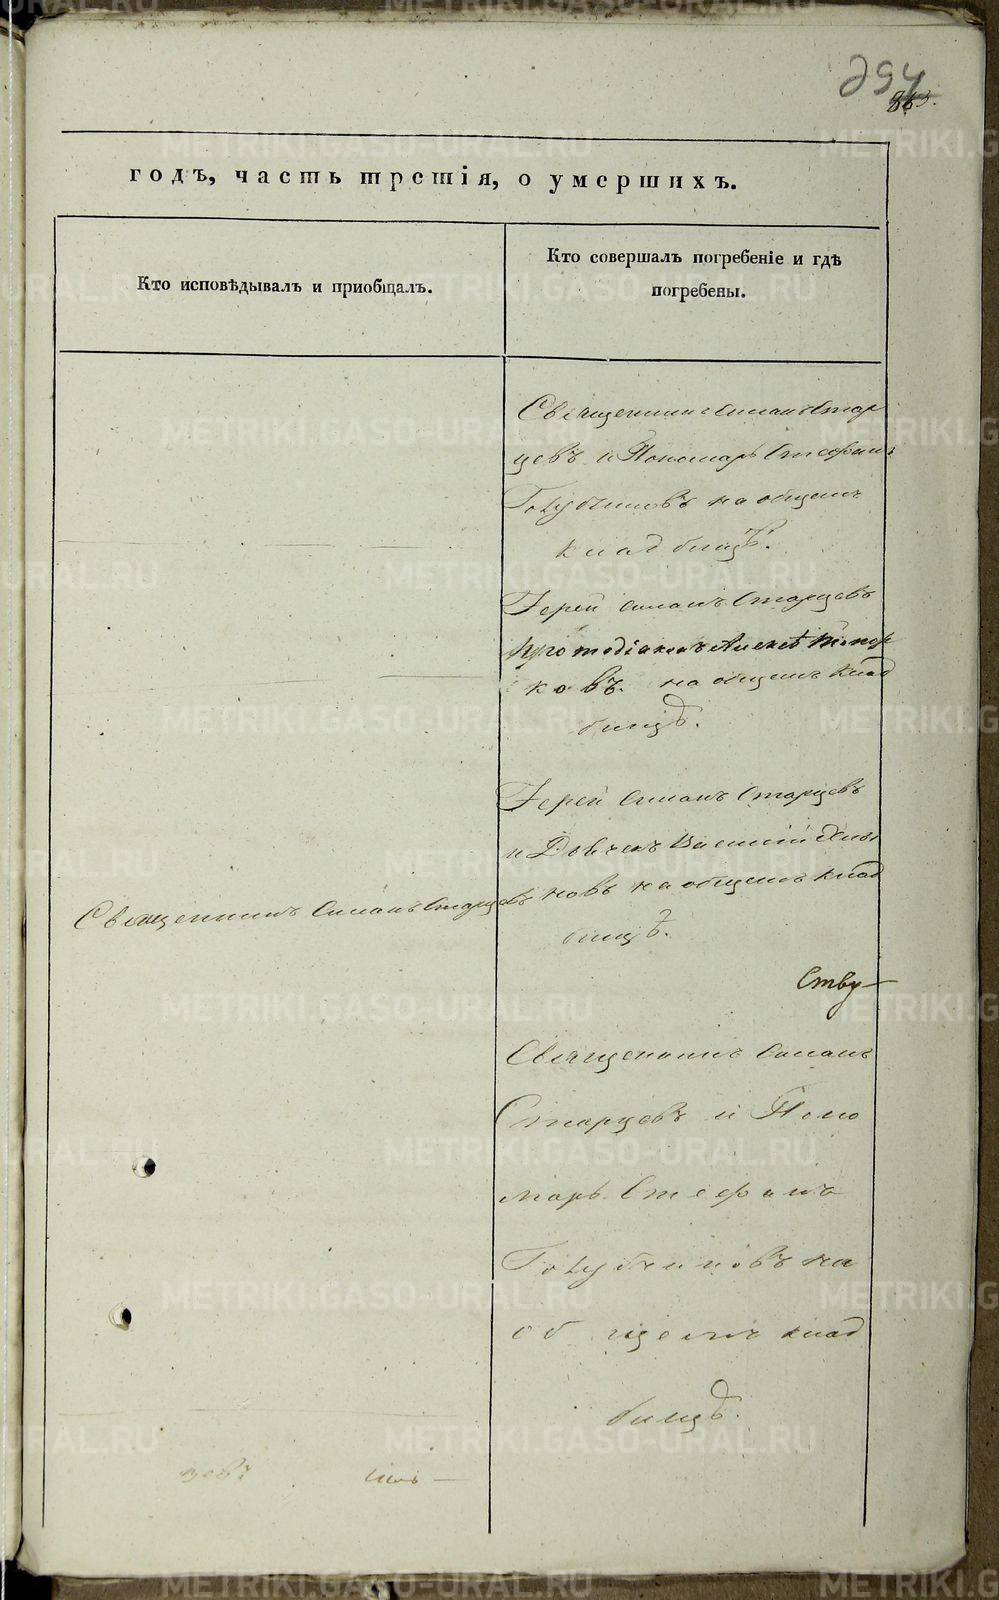 294
годъ, часть третія, о умершихъ.
Кто исповѣдывалъ и приобщалъ.
Кто совершалъ погребеніе и гдѣ
погребены.
Священникъ Симонъ Стар
цевъ и Пономарь Стефанъ
Голубчиковъ на общемъ
кладбищѣ.
Іерей Симонъ Старцевъ
протодіаконъ Алексѣй Топор
ковъ. на общемъ клад
бищѣ.
Іерей Симонъ Старцевъ
и Дьячекъ Василій
новъ на общемъ клад
бищѣ.
Священникъ Симонъ Старцевъ
Ству—
Священникъ Симонъ
Старцевъ и Поно
марь Стефанъ
Голубчиковъ на
общемъ клад
бищѣ.
цовъ
METRIKI.GASO-URAL.RU